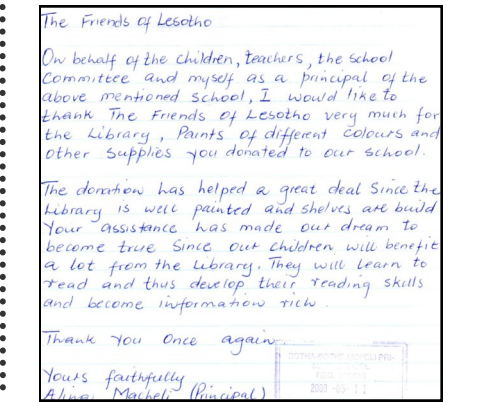 The Friends of Lesotho
On behalf of the children, teachers, the school
Committee and myself as a principal of the
above mentioned school, I would like to
thank The Friends of Lesotho very much for
the Library, Paints of different colours and
other supplies you donated to our school.
The donation has helped a great deal Since the
Library is well painted and shelves are build
Your assistance has made our dream to
become true Since our children will benefit
a lot from the Library. They will learn to
read and thus develop their reading skills
and become information rich.
Thank You Once again.
Yours faithfully
Alina Macheli (Principal)